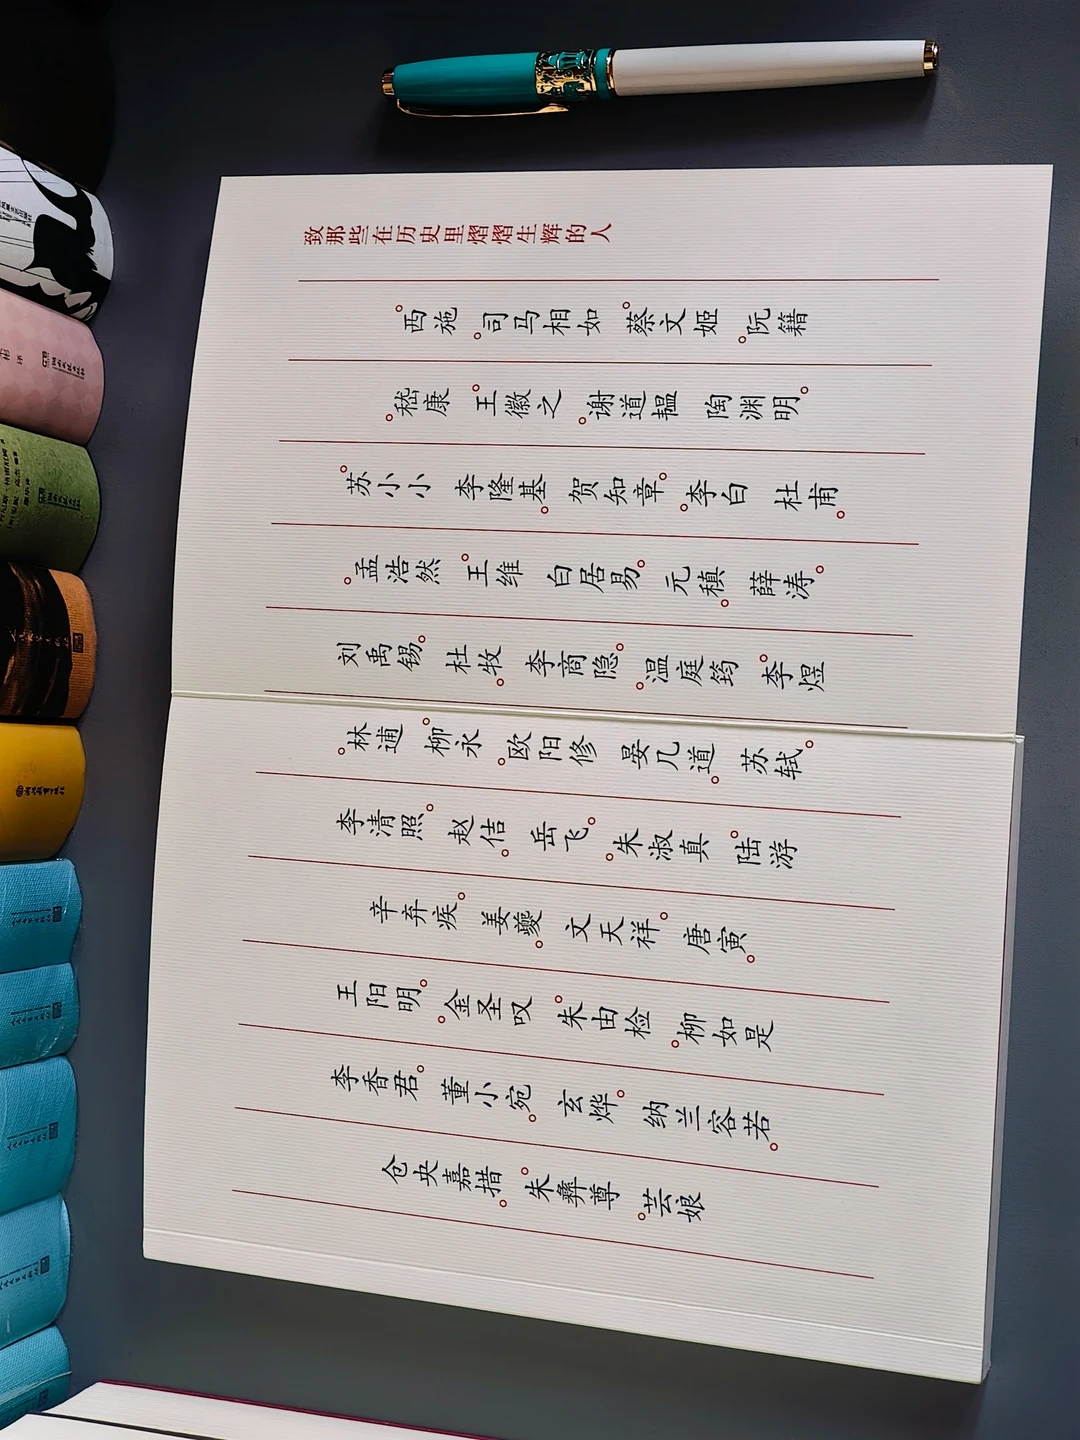 致那些在历史里熠熠生辉的人
西施 司马相如 蔡文姬 阮籍
嵇康 王徽之 谢道韫 陶渊明
苏小小 李隆基 贺知章 李白 杜甫
孟浩然 王维 白居易 元稹 薛涛
刘禹锡 杜牧 李商隐 温庭筠 李煜
林逋 柳永 欧阳修 晏几道 苏轼
李清照 赵佶 岳飞 朱淑真 陆游
辛弃疾 姜夔 文天祥 唐寅
王阳明 金圣叹 朱由检 柳如是
李香君 董小宛 玄烨 纳兰容若
仓央嘉措 朱彝尊 芸娘